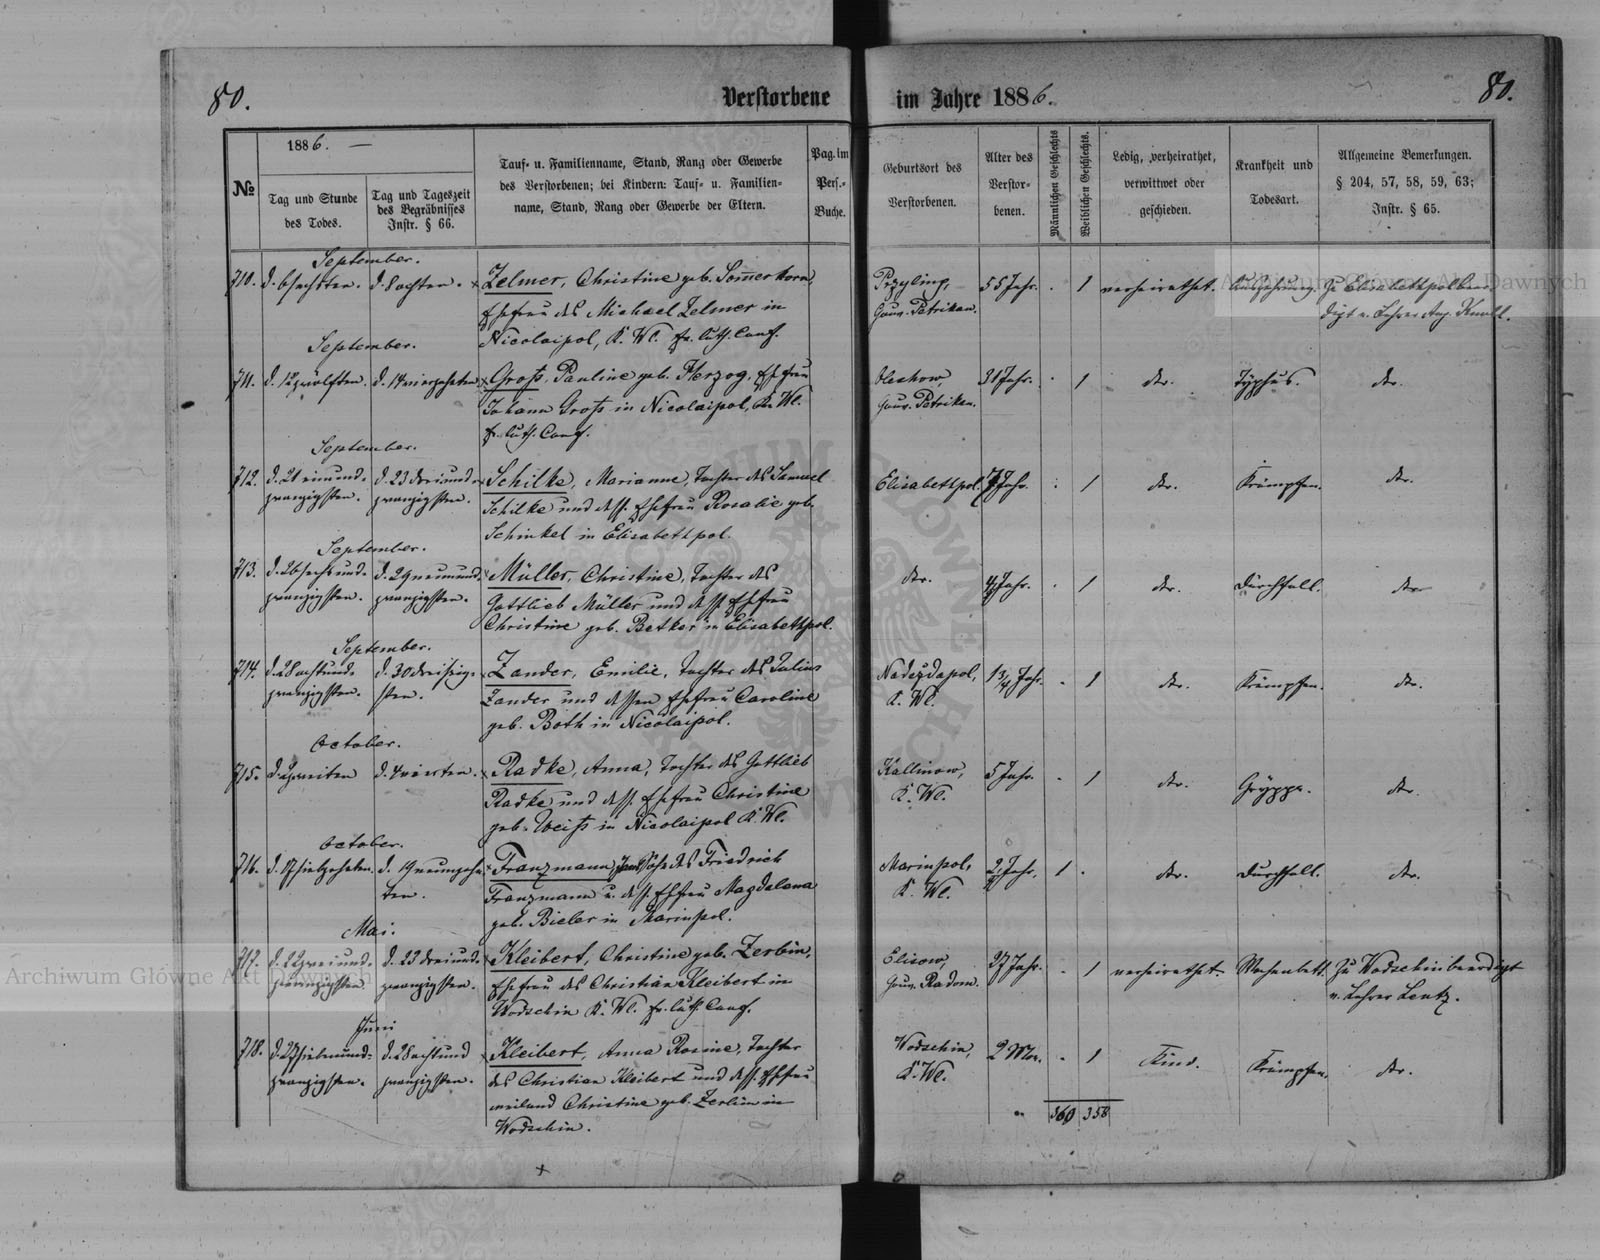 80.
Verstorbene
im Jahre 1886.
80.
№
1886. —
Tag und Stunde
des Todes.
Tag und Tageszeit
des Begräbnisses
Instr. § 66.
Tauf- u. Familienname, Stand, Rang oder Gewerbe
des Verstorbenen; bei Kindern: Tauf- u. Familien-
name, Stand, Rang oder Gewerbe der Eltern.
Pag. im
Pers.-
Buche.
Geburtsort des
Verstorbenen.
Alter des
Verstor-
benen.
Männlichen Geschlechts
Weiblichen Geschlechts.
Ledig, verheirathet,
verwittwet oder
geschieden.
Krankheit und
Todesart.
Allgemeine Bemerkungen.
§ 204, 57, 58, 59, 63;
Instr. § 65.
September.
710. d. 6 sechsten. d. 8 achten. Zelmer, Christine geb. Sommerkorn,
Ehefrau des Michael Zelmer in
Nicolaipol, K. Wl. ev. luth. Conf.
Gouv. Petrikau.
55 Jahr. 1 verheirathet.
Zu Elisabethpol beer-
digt v. Lehrer Aug. Knoll.
September.
711. d. 12 zwölften. d. 14 vierzehnten. Groß, Pauline geb. Herzog, Ehefrau
Johann Groß in Nicolaipol, K. Wl.
ev. luth. Conf.
Gouv. Petrikau.
31 Jahr. 1 dto. Typhus. dto.
September.
712. d. 21 einund-
zwanzigsten.
d. 23 dreiund-
zwanzigsten.
Schilke, Marianne, Tochter des Samuel
Schilke und dess. Ehefrau Rosalie geb.
Schinkel in Elisabethpol.
Elisabethpol. Jahr. 1 dto. Krämpfen. dto.
September.
713. d. 26 sechsund-
zwanzigsten.
d. 29 neunund-
zwanzigsten.
Müller, Christine, Tochter des
Gottlieb Müller und dess. Ehefrau
Christine geb. Betker in Elisabethpol.
dto. Jahr. 1 dto. Durchfall. dto.
September.
714. d. 28 achtund-
zwanzigsten.
d. 30 dreißig-
sten.
Zander, Emilie, Tochter des Julius
Zander und dessen Ehefrau Caroline
geb. Both in Nicolaipol.
Nadeżdapol,
K. Wl.
1 3/4 Jahr. 1 dto. Krämpfen. dto.
October.
715. d. 2 zweiten d. 4 vierten. Radke, Anna, Tochter des Gottlieb
Radke und dess. Ehefrau Christine
geb. Weiß in Nicolaipol K. Wl.
Kallinow,
K. Wl.
5 Jahr. 1 dto. dto.
October.
716. d. 17 siebzehnten. d. 19 neunzehn-
ten.
Franzmann, Sohn des Friedrich
Franzmann u. dess. Ehefrau Magdalena
geb. Bieler in Marinpol.
Marinpol,
K. Wl.
Jahr. 1 dto. Durchfall. dto.
Mai.
717. d. 22 zweiund-
zwanzigsten
d. 23 dreiund-
zwanzigsten.
Kleibert, Christine geb. Zerbin,
Ehefrau des Christian Kleibert in
Wodschin K. Wl. ev. luth. Conf.
Elisow,
Gouv. Radom.
37 Jahr. 1 verheirathet. Wochenbett. Zu Wodschin beerdigt
v. Lehrer Lentz.
Juni
718. d. 27 siebenund-
zwanzigsten.
d. 28 achtund
zwanzigsten.
Kleibert, Anna Rosine, Tochter
des Christian Kleibert und dess. Ehefrau
weiland Christine geb. Zerbin in
Wodschin.
Wodschin,
K. Wl.
2 Mon. 1 Kind. Krämpfen. dto.
360 358
Archiwum Główne Akt Dawnych
Archiwum Główne Akt Dawnych